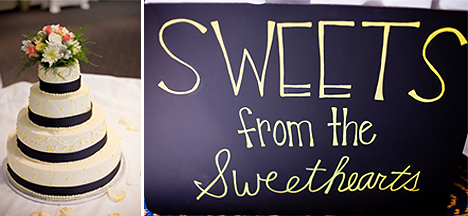 SWEETS
from the
Sweethearts